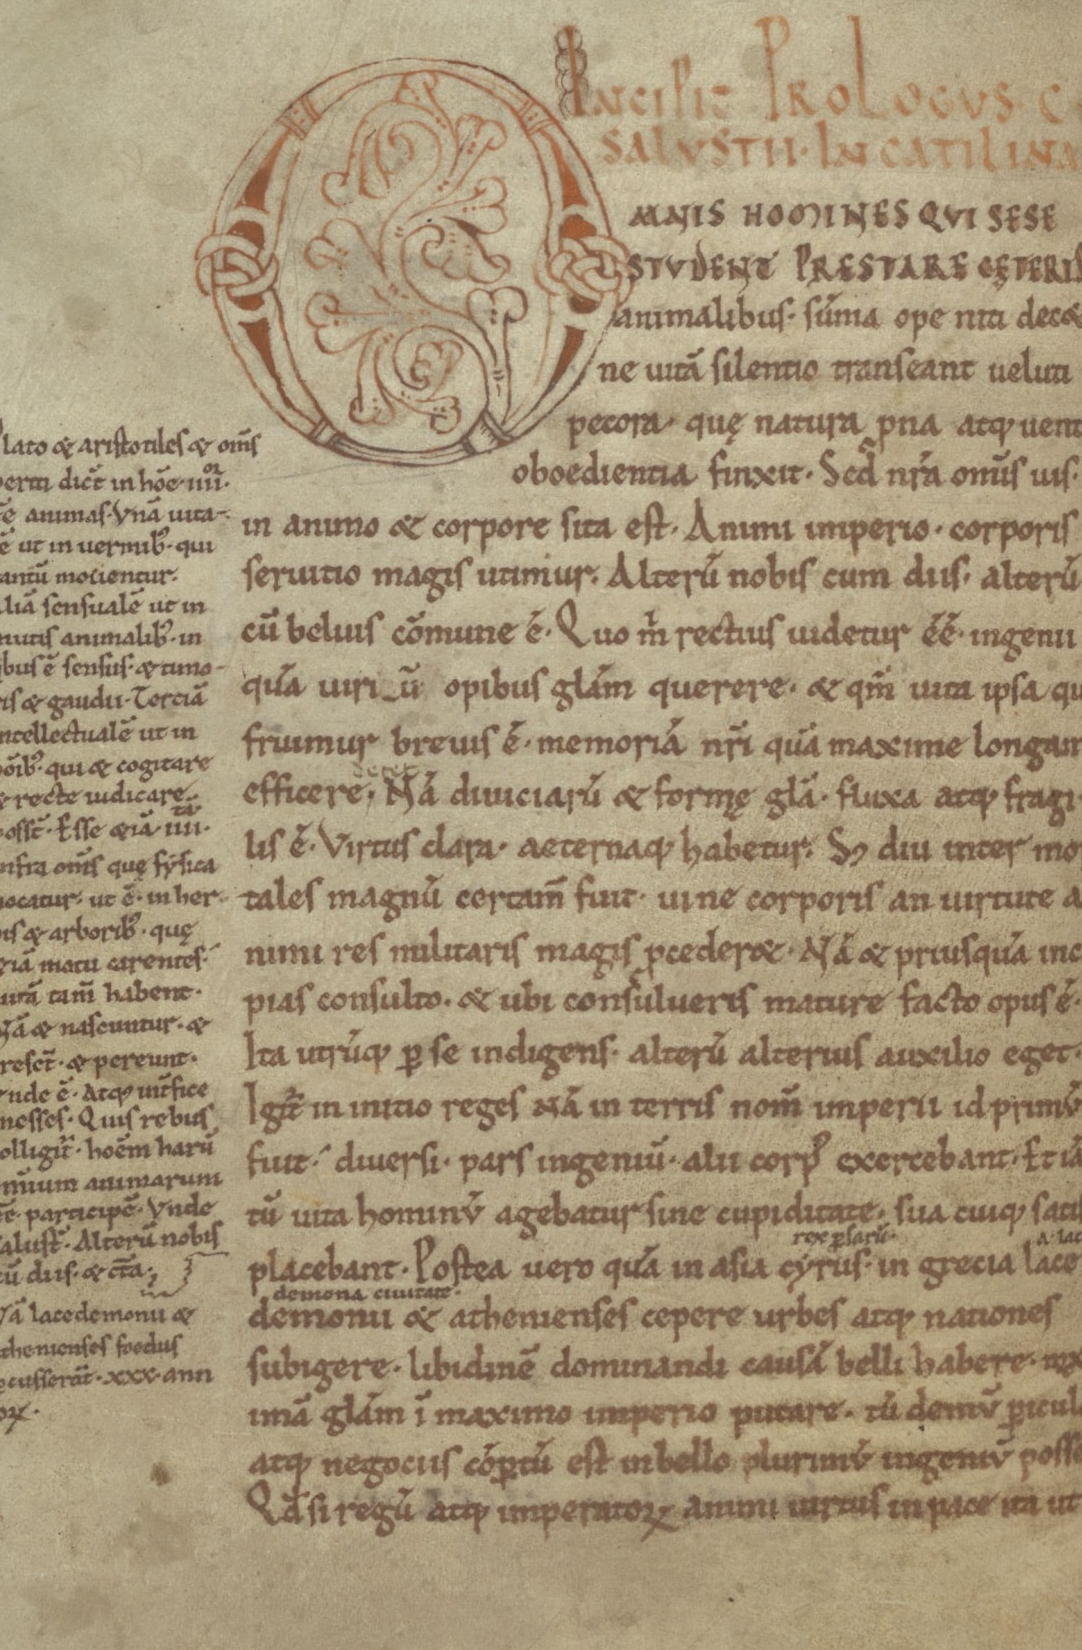 INCIPIT PROLOGUS C
SALUSTII · IN CATILINA
OMNIS HOMINES QVI SESE
STVDENT PRESTARE CĘTERIS
animalibus· sūma ope niti decet
ne uitā silentio transeant ueluti
pecora· quę natura p̄na atq; uent
oboedientia finxit· Sed nr̄a omīs uis·
in animo & corpore sita est· Animi imperio· corporis
seruitio magis utimur· Alterū nobis cum diis· alterū
cū beluis cōmune ē· Quo m̄ rectius uidetur ēē· ingenii
quā uiriū opibus glām querere· & qm̄ uita ipsa qu
fruimur breuis ē· memoriā nr̄i quā maxime longam
efficere· Nā diuiciarū & formę glā· fluxa atq; fragi
lis ē· Virtus clara· aeternaq; habetur· S; diu inter mo
tales magnū certam̄ fuit· uine corporis an uirtute a
nimi res militaris magis p̄cederet· Nā & priusquā inc
pias consulto· & ubi consulueris mature facto opus ē·
Ita utrūq; p̄ se indigens· alterū alterius auxilio eget·
Igit̄ in initio reges nā in terris nom̄ imperii id primū
fuit· diuersi· pars ingeniū· alii corp᾽ exercebant· Et iā
tū uita hominū agebatur sine cupiditate· sua cuiq; satis
rex p̄sarū·
placebant· Postea uero quā in asia cyrus· in grecia lace
demona ciuitate·
demonii & athenienses cepere urbes atq; nationes
subigere· libidinē dominandi causā belli habere·
imā glām ī maximo imperio putare· tū demū p̄icul
atq; negociis cōp̄tū est in bello plurimū ingeniū posse
Qd̄ si regū atq; imperatorꝝ animi uirtus in pace ita ut
lato & aristotiles & om̄s
dic̄t in hōe· iiii·
ē animas· Vnā uita-
ē ut in uermib᾽· qui
antū mouentur·
liā sensualē ut in
mutis animalib᾽· in
ibus ē sensus· & timo-
ris & gaudii· Terciā
ntellectualē ut in
oīb᾽· qui & cogitare
& recte iudicare
oss̄t· Esse & iā iiii·
nfra om̄s quę fysica
uocatur· ut ē· in her-
bis & arborib᾽· quę
& iā motu carentes·
uitā tam̄ habent·
Nā & nascuntur· &
resc̄t· & pereunt·
nde ē· Atq; int̄fice
messes· Quis rebus
olligit̄· hoēm harū
mnium animarum
ēē participē· Vnde
alust̄· Alterū nobis
cū diis· & cēta·
Nā lacedemonii &
thenienses foedus
cusserāt· xxx· ann
orꝝ·